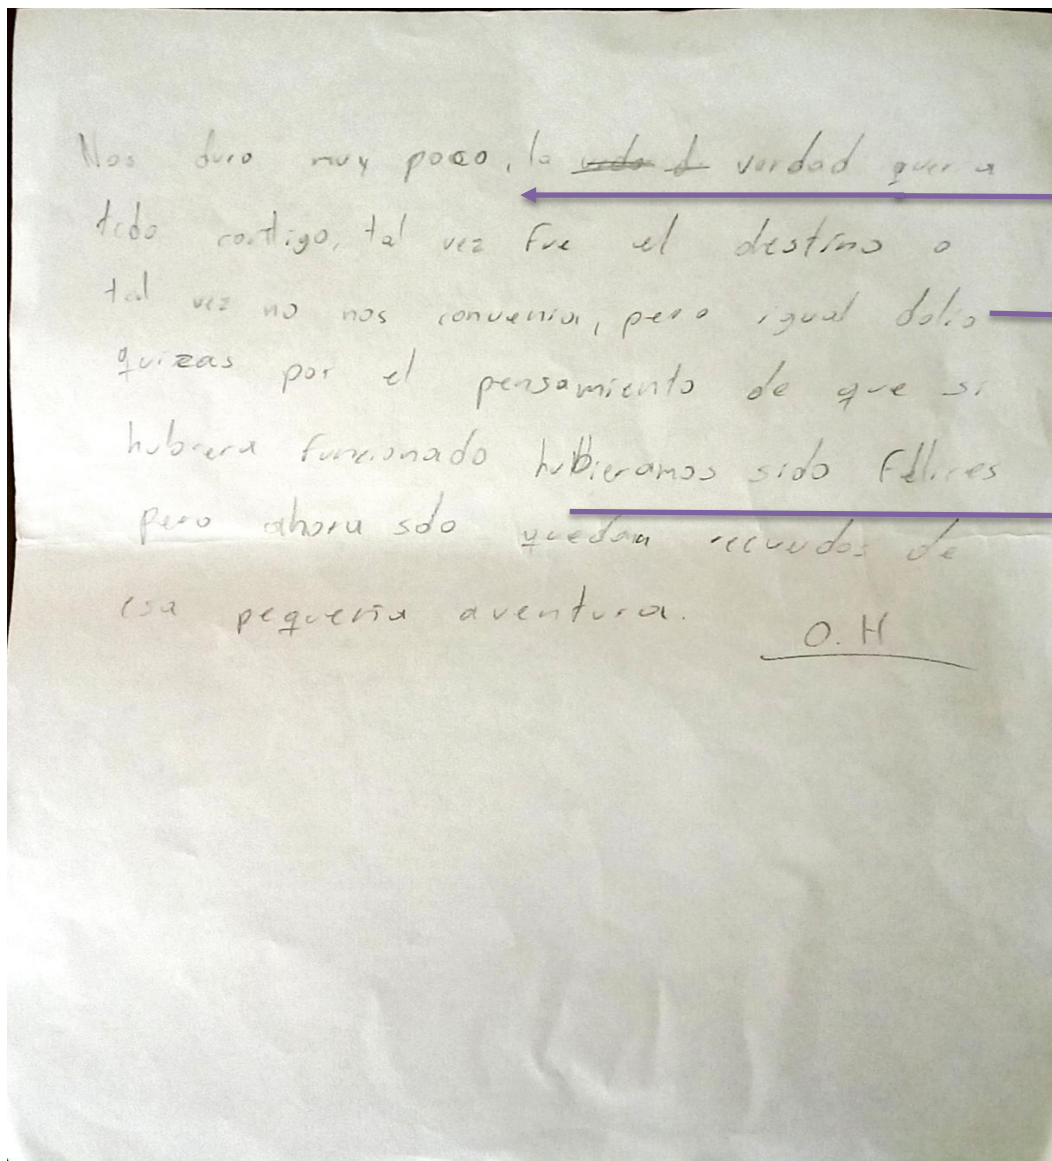 Nos duro muy poco, la verdad queria
todo contigo, tal vez fue el destino o
tal vez no nos convenia, pero igual dolio
quizas por el pensamiento de que si
hubiera funcionado hubieramos sido felices
pero ahora solo quedan recuerdos de
esa pequeña aventura.
O.H